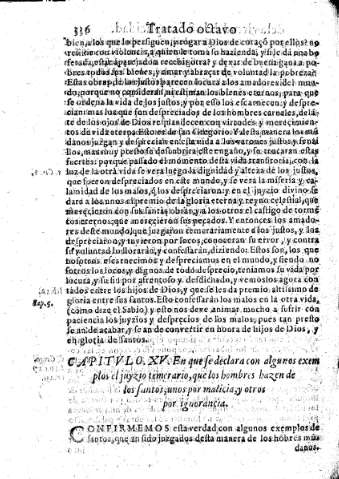 336 Tratado octavo
bien, a los que lo persiguen, y rogar a Dios de coraçõ por ellos: no
resistir con violencia, a quien le toma su hazienda, y si le dã una bo
fetada, estar aparejado a recebir otra: y dexar de buena gana a po-
bres todos sus bienes, y amar y abraçar de voluntad la pobreza.
Estas obras de los justos parecen locura a los amadores del mun-
do, porque no consideran, ni estiman los bienes eternos, para que
se ordena la vida de los justos, y por esso los escarnecen: y despre-
cian mas los que son despreciados de los hombres carnales, delã-
te de los ojos de Dios resplandecen con virtudes, y merecimien-
tos de vida eterna. Esto es de san Gregorio. Y desta manera los mũ
danos juzgan y desprecian en esta vida a los varones justos, y senzi
llos, mas muy presto se descubrira este engaño, y se trocaran estas
suertes: porque passado el momento desta vida transitoria, con la
luz de la otra vida se vera luego la dignidad y alteza de los justos,
que fueron despreciados en este mundo, y se vera la miseria y ca-
lamidad de los malos, q̃ los despreciaron: y en el juyzio divino se
dara a los unos el premio de la gloria eterna, y reyno celestial, que
merecieron con sus santas obras, y a los otros el castigo de tormẽ
tos eternos, que merecieron por sus pecados. Y entonces los amado
res deste mundo, que juzgaron temerariamente a los justos, y los
despreciarõ, y tuvieron por locos, conoceran su error, y contra
su voluntad lo lloraràn, y confessaràn, diziendo: Estos son, los que
nosotros escarnecimos y despreciamos en el mundo, y siendo no
sotros los locos, y dignos de todo desprecio, teniamos su vida por
locura, y su fin por afrentoso y desdichado, y vemoslos agora con
tados entre los hijos de Dios, y que se les da premio altissimo de
gloria entre sus santos. Esto confessaràn los malos en la otra vida,
Sap. 5.
(como dize el Sabio) y esto nos deve animar mucho a sufrir con
paciencia los juyzios y desprecios de los malos, pues tan presto
se an de acabar, y se an de convertir en honra de hijos de Dios, y
en gloria de santos.
CAPITULO. XV. En que se declara con algunos exem
plos el juyzio temerario, que los hombres hazen de
los santos, unos por malicia, y otros
por ignorancia.
CONFIRMEMOS esta verdad con algunos exemplos de
santos, que an sido juzgados desta manera de los hõbres mũ
danos.